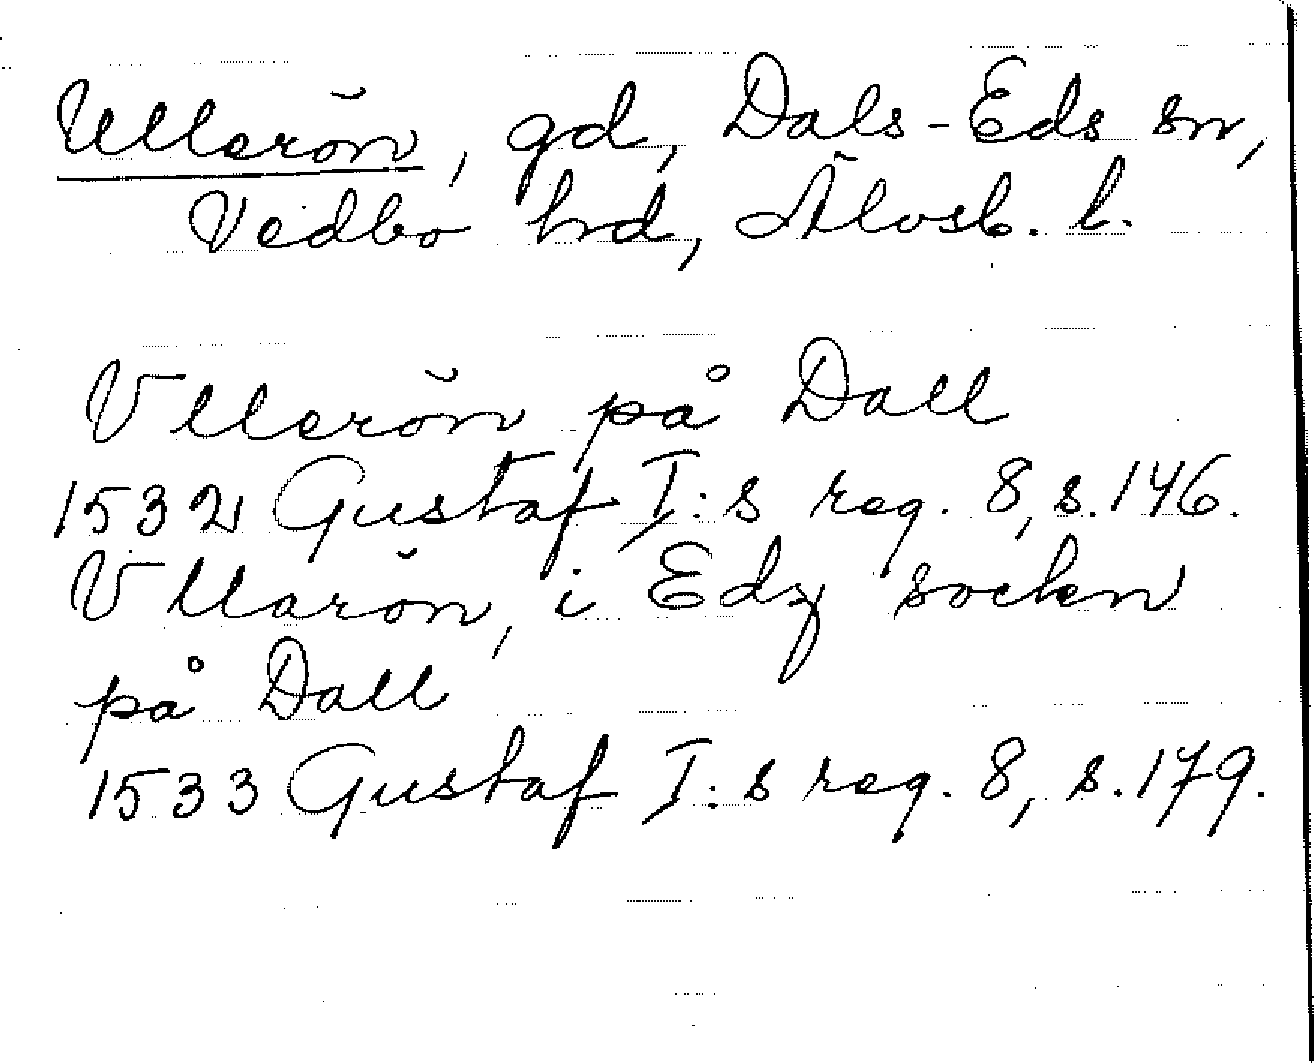 Ullerön, gd, Dals-Eds sn,
Vedbo hd, Älvsb. l.
Vllerön på Dall
1532 Gustaf I:s reg. 8, s. 146.
Vllarön, i Edz sockn
på Dall
1533 Gustaf I:s reg. 8, s. 179.